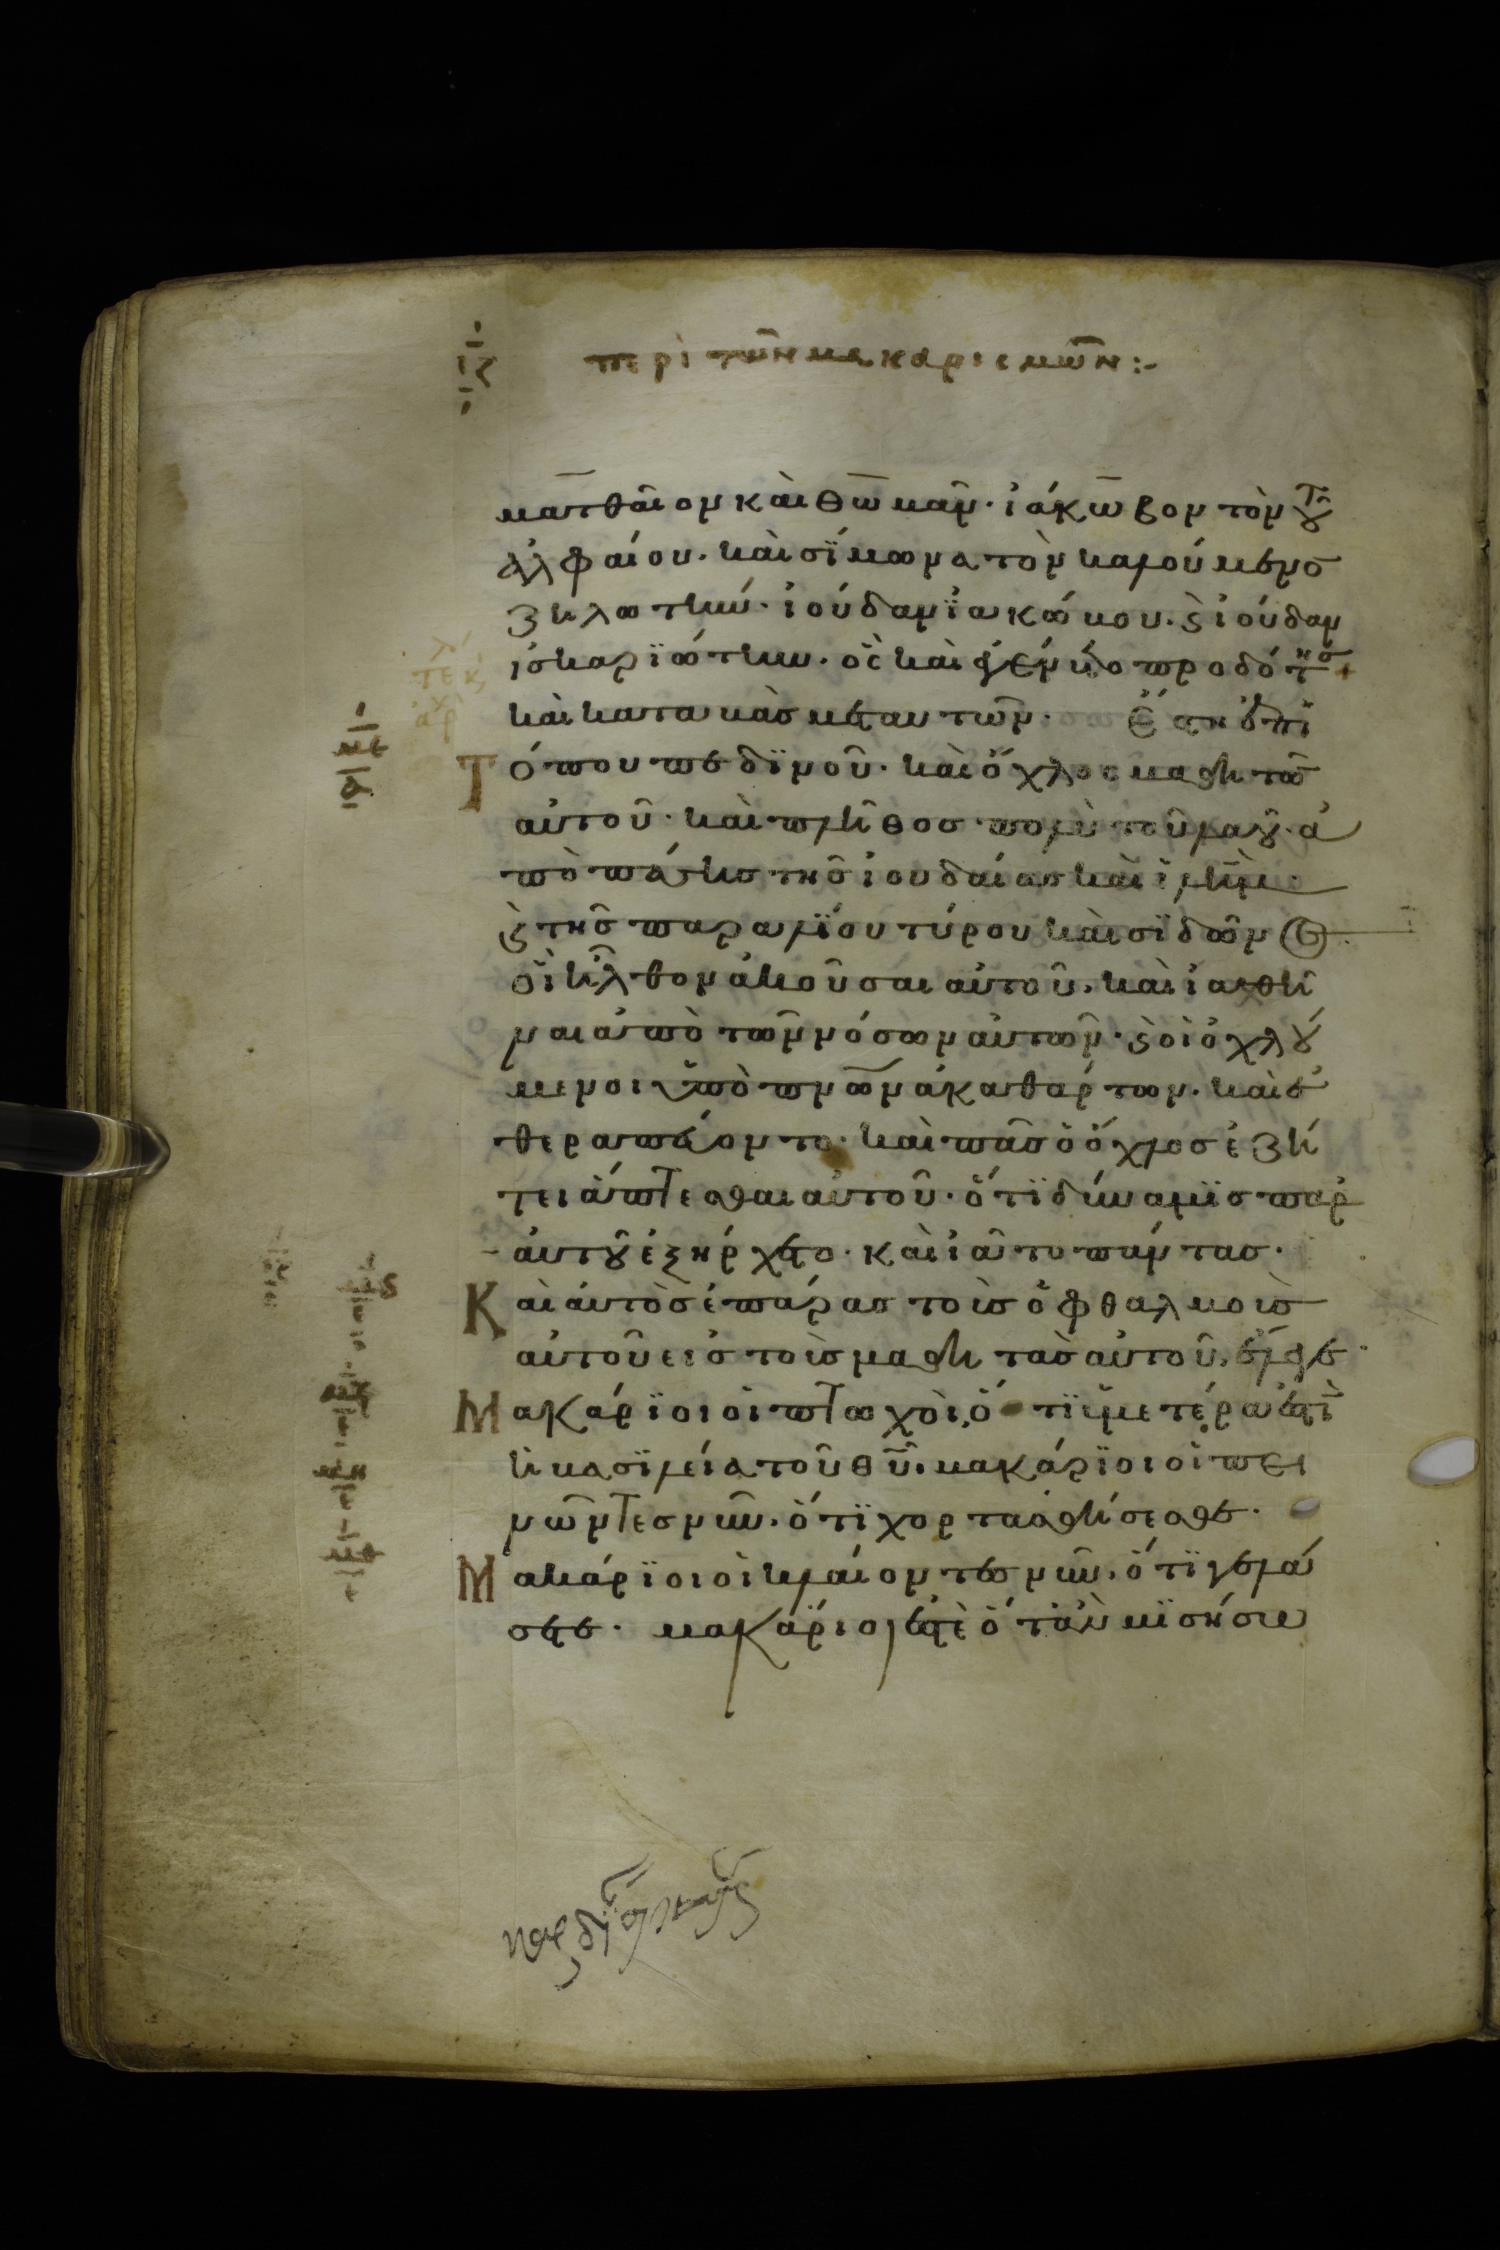 ιζ περὶ τῶν μακαρισμῶν :-
ματθαῖον καὶ θωμᾶν· ἰάκωβον τὸν τοῦ
ἀλφαίου· καὶ σίμωνα τὸν καλούμενο
ζηλωτήν· ἰούδαν ϊακώβου· καὶ ἰούδαν
ἰσκαρϊώτην· ὃς καὶ ἐγένετο προδότης +
καὶ καταβὰς μεταυτῶν· ἔστη ἐπὶ
Τόπου πεδϊνοῦ· καὶ ὄχλος μαθητῶν
αὐτοῦ· καὶ πλῆθος πολὺ τοῦ λαοῦ· ἀ
πὸ πάσης τῆς ἰουδαίας καὶ ἱλημ·
καὶ τῆς παραλΐου τύρου καὶ σϊδῶν
οἳ ἦλθον ἀκοῦσαι αὐτοῦ· καὶ ἰαθῆ
ναι ἀπὸ τῶν νόσων αὐτῶν· καὶ οἱ ὀχλού
μενοι ὑπὸ πνῶν ἀκαθάρτων· καὶ ἐ
θεραπεύοντο· καὶ πᾶς ὁ ὄχλος ἐζή
τει ἅπτεσθαι αὐτοῦ· ὅτϊ δύναμϊς παρ
αὐτοῦ ἐξήρχετο· καὶ ἰᾶτο πάντας·
Καὶ αὐτὸς ἐπάρας τοὺς ὀφθαλμοὺς
αὐτοῦ εἰς τοὺς μαθητὰς αὐτοῦ· ἔλεγε·
Μακάρϊοι οἱ πτωχοὶ, ὅτϊ ὑμετέρα ἐστὶ
ἡ βασϊλεία τοῦ θῦ· μακάρϊοι οἱ πει
νῶντες νῦν· ὅτϊ χορτασθήσεσθε·
Μακάρϊοι οἱ κλαίοντες νῦν· ὅτϊ γελά
σετε· μακάριοι ἐστὲ ὅταν μϊσήσω